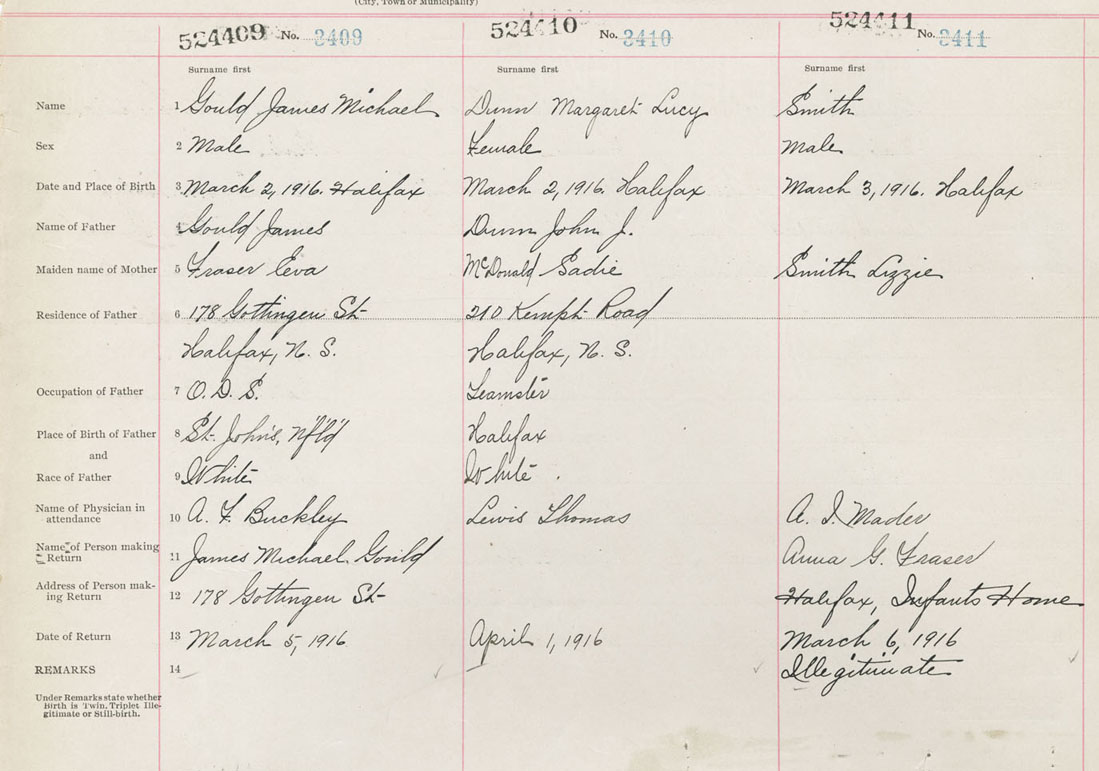 (City, Town or Municipality)
524409 No. 3409 524410 No. 3410 524411 No. 3411
Surname first Surname first Surname first
Name 1 Gould James Michael Dunn Margaret Lucy Smith
Sex 2 Male Female Male
Date and Place of Birth 3 March 2, 1916. Halifax March 2, 1916. Halifax March 3, 1916. Halifax
Name of Father 4 Gould James Dunn John J.
Maiden name of Mother 5 Fraser Eva McDonald Sadie Smith Lizzie
Residence of Father 6 178 Gottingen St 210 Kempt Road
Halifax, N. S. Halifax, N. S.
Occupation of Father 7 O. D. S. Teamster
Place of Birth of Father 8 St. John's, Nf'l'd Halifax
and
Race of Father 9 White White
Name of Physician in
attendance 10 A. F. Buckley Lewis Thomas A. I. Mader
Name of Person making
Return 11 James Michael Gould Anna G. Fraser
Address of Person mak-
ing Return 12 178 Gottingen St Halifax, Infants Home
Date of Return 13 March 5, 1916 April 1, 1916 March 6, 1916
REMARKS 14 Illegitimate
Under Remarks state whether
Birth is Twin, Triplet Ille-
gitimate or Still-birth.